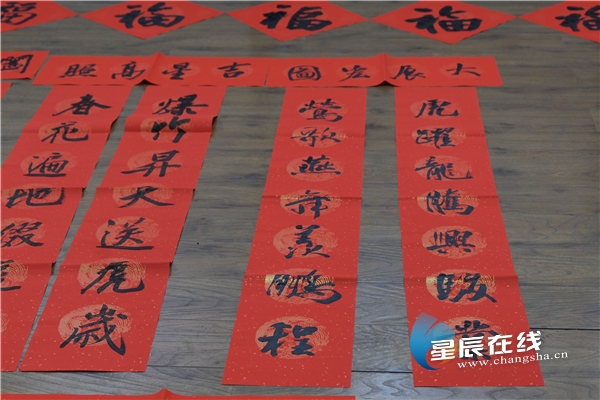 福
福
福
福
福
大展宏圖
吉星高照
虎躍龍騰興駿
鶯歌燕舞羨鵬程
爆竹昇天送虎歲
春花遍地綴
星辰在线
www.changsha.cn